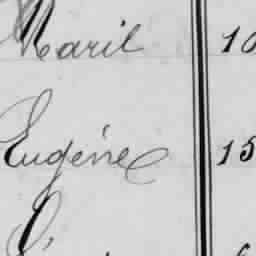 Maril 10
Eugéne 15